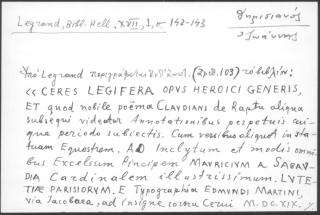 Legrand, Bibl. Hell. XVII, I, σ. 142-143
Θηρισιανός
Ἰωάννης
Ὑπὸ Legrand περιγράφεται (ἀριθ. 103) τὸ βιβλίον:
« CERES LEGIFERA OPUS HEROICI GENERIS,
ET quod nobile poëma CLAUDIANI de Raptu aliqua
subsequi videatur Annotationibus perpetuis cui-
que periodo subiectis. Cum versibus aliquot in sta-
tuam Equestrem. AD Inclytum et modis omni-
bus Excelsum Principem MAURICIUM A SABAU-
DIA Cardinalem illustrissimum. LUTE-
TIAE PARISIORUM, E Typographia EDMUNDI MARTINI,
via Jacobaea, ad insigne cornu Cervi M.DC.XIX. »